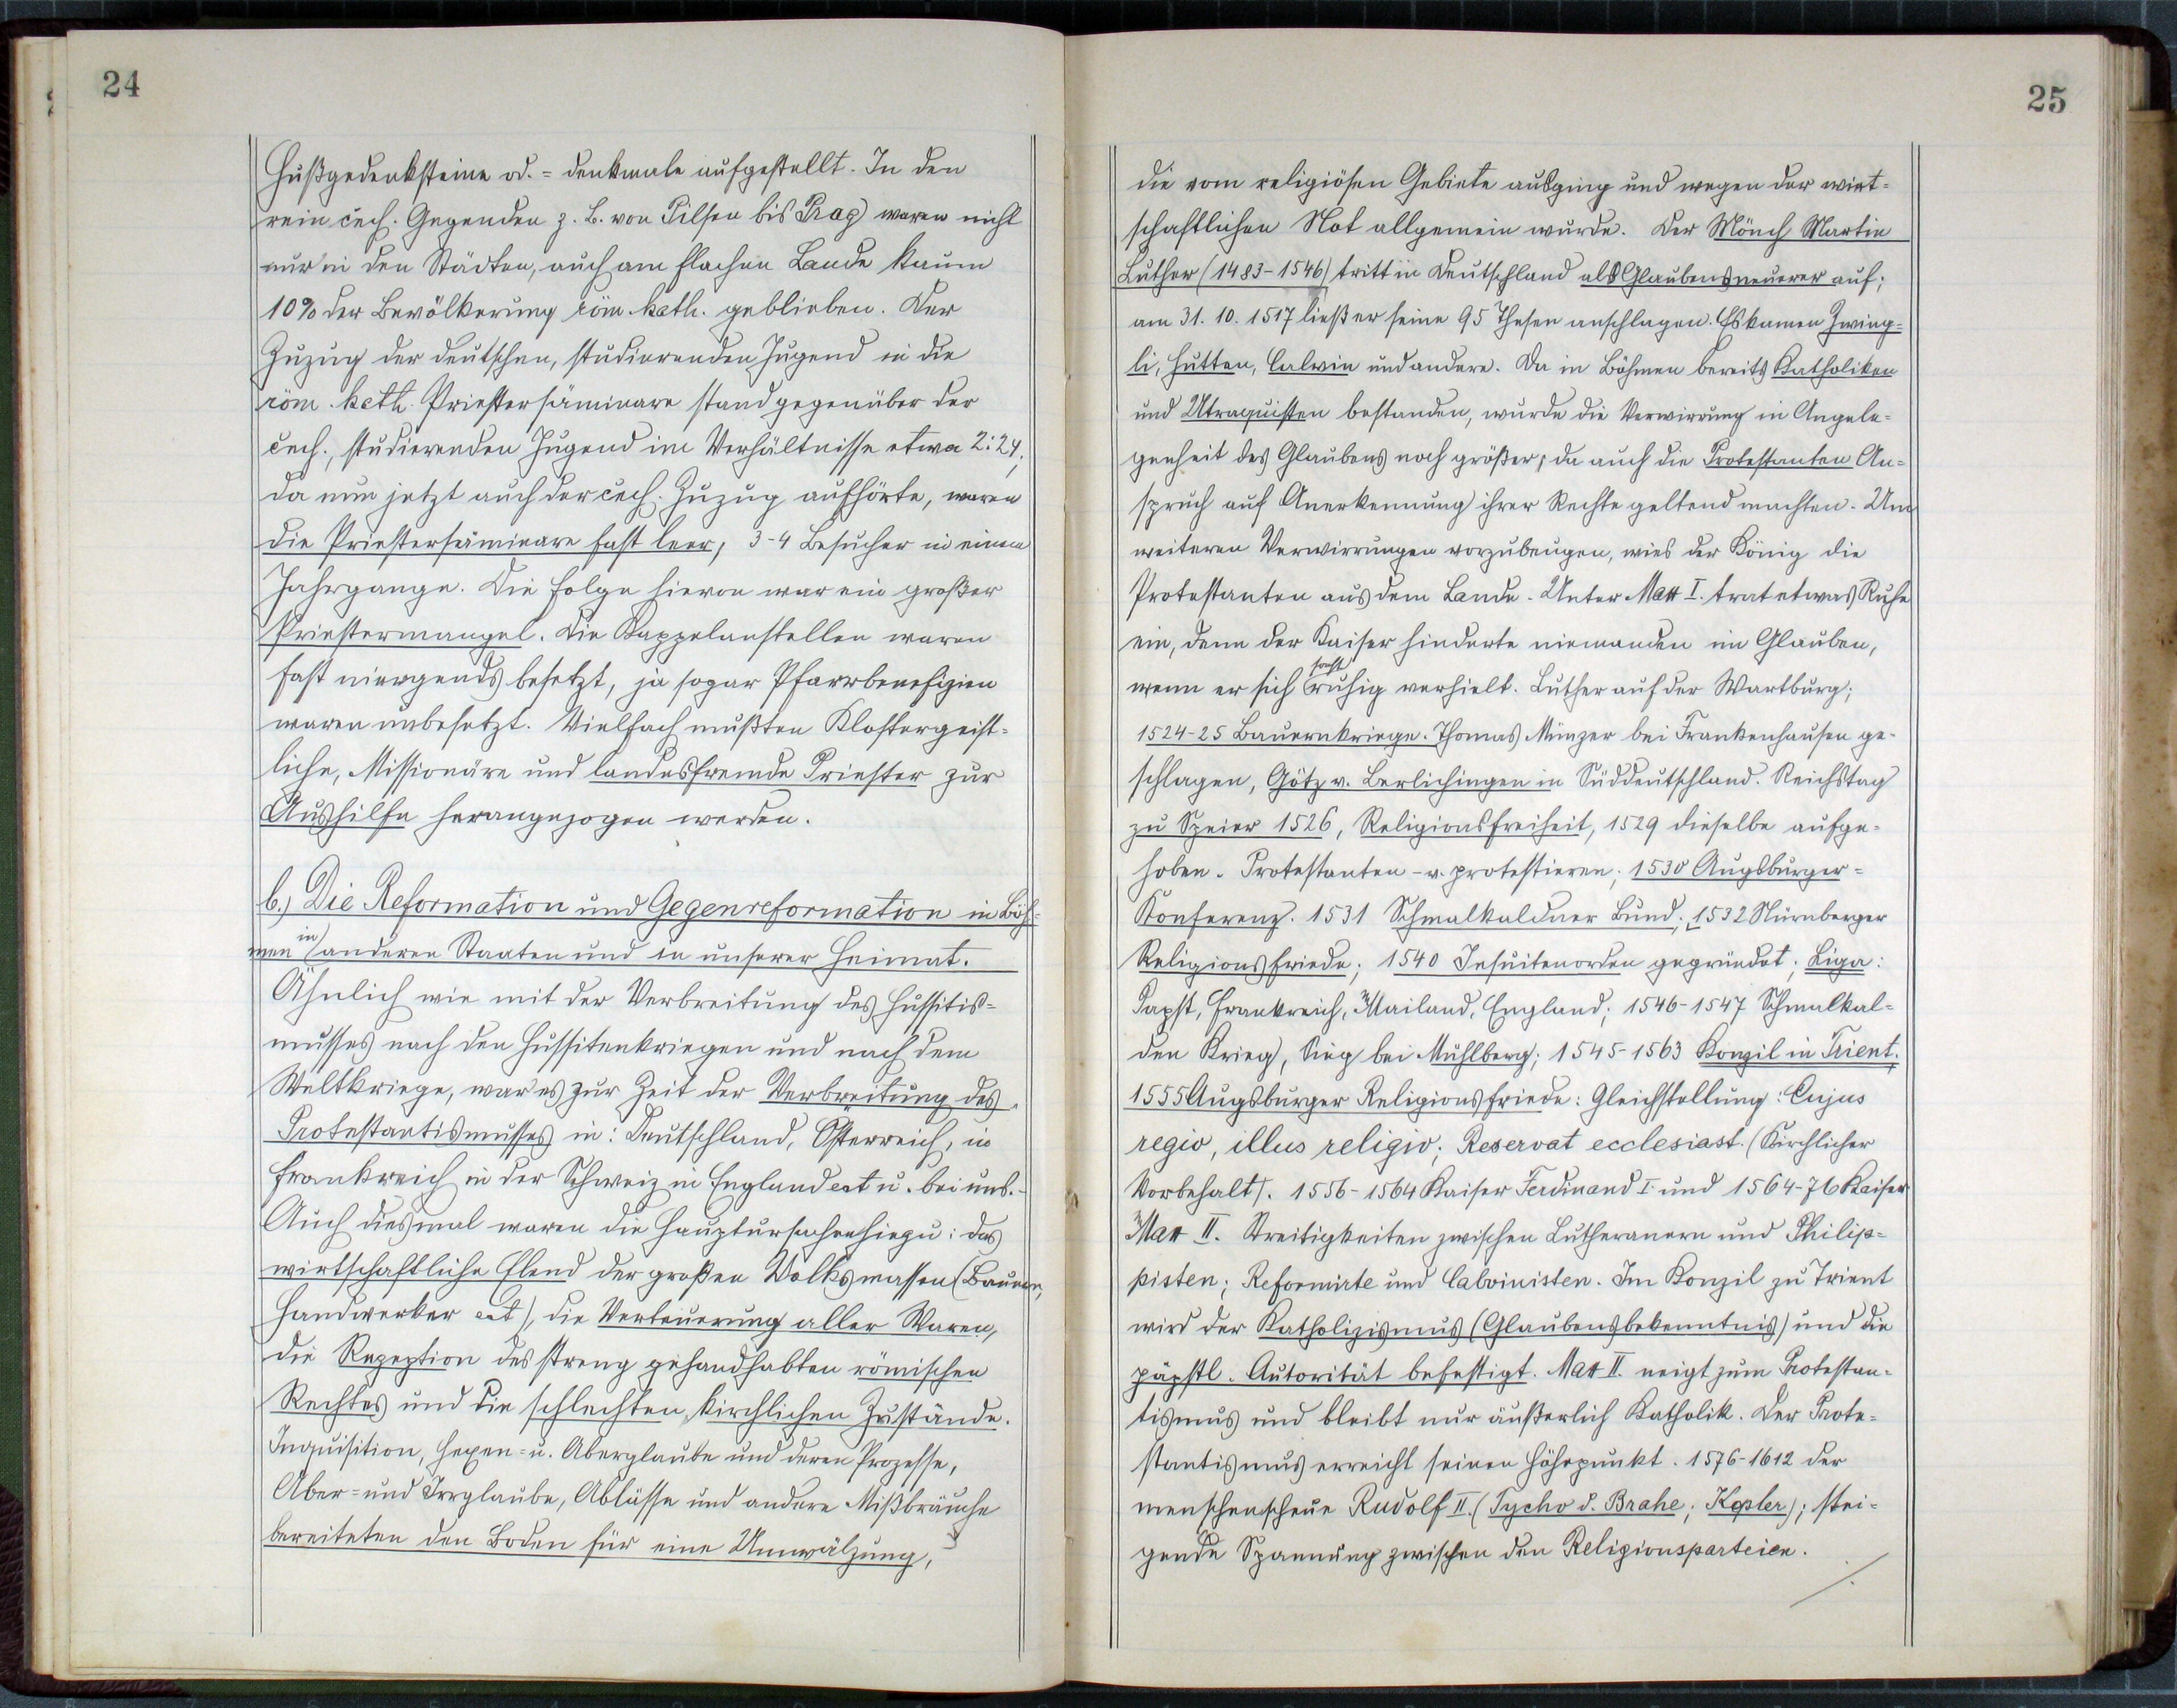 24
Hußgedenksteine od. = denkmale aufgestellt. In den
rein čech. Gegenden z. B. von Pilsen bis Prag waren nicht
nur in den Städten, auch am flachen Lande kaum
10% der Bevölkerung röm. kath. geblieben. Der
Zuzug der deutschen, studierenden Jugend in die
röm. kath. Priesterseminare stand gegenüber der
čech., studierenden Jugend im Verhältnisse etwa 2:24;
da nun jetzt auch der čech. Zuzug aufhörte, waren
die Priesterseminare fast leer, 3-4 Besucher in einem
Jahrgange. Die Folge hievon war ein großer
Priestermangel. Die Kappelanstellen waren
fast niergends besetzt, ja sogar Pfarrbenefizien
waren unbesetzt. Vielfach mußten Klostergeist=
liche, Missionäre und landesfremde Priester zur
Aushilfe herangezogen werden.
b.) Die Reformation und Gegenreformation in Böh=
men in anderen Staaten und in unserer Heimat.
Ähnlich wie mit der Verbreitung des Hussitis=
musses nach den Hussitenkriegen und nach dem
Weltkriege, war es zur Zeit der Verbreitung des
Protestantismusses in: Deutschland, Österreich, in
Frankreich in der Schweiz in England ect u. bei uns.-
Auch diesmal waren die Hauptursachen hiezu: das
wirtschaftliche Elend der großen Volksmassen (Bauern,
Handwerker ect), die Verteuerung aller Waren,
die Rezeption des streng gehandhabten römischen
Rechtes und die schlechten, kirchlichen Zustände.
Inquisition, Hexen= u. Aberglaube und deren Prozesse,
Aber= und Irrglaube, Ablässe und andere Mißbräuche
bereiteten den Boden für eine Umwälzung,
25
die vom religiösen Gebiete ausging und wegen der wirt=
schaftlichen Not allgemein wurde. Der Mönch Martin
Luther (1483-1546) tritt in Deutschland als Glaubensneuerer auf;
am 31. 10. 1517 ließ er seine 95 Thesen anschlagen. Es kamen Zwing=
li, Hutten, Calvin und andere. Da in Böhmen bereits Katholiken
und Utraquisten bestanden, wurde die Verwirrung in Angele=
genheit des Glaubens noch größer, da auch die Protestanten An=
spruch auf Anerkennung ihrer Rechte geltend machten. Um
weiteren Verwirrungen vorzubeugen, wies der König die
Protestanten aus dem Lande. Unter Max I. trat etwas Ruhe
ein, denn der Kaiser hinderte niemanden im Glauben,
wenn er sich sonst ruhig verhielt. Luther auf der Wartburg;
1524-25 Bauernkriege. Thomas Münzer bei Frankenhausen ge-
schlagen, Götz v. Berlichingen in Süddeutschland. Reichstag
zu Speier 1526, Religionsfreiheit, 1529 dieselbe aufge=
hoben. Protestanten - v. protestieren; 1530 Augsburger=
Konferenz. 1531 Schmalkaldner Bund; 1532 Nürnberger
Religionsfriede; 1540 Jesuitenorden gegründet; Liga:
Papst, Frankreich, Mailand, England; 1546-1547 Schmalkal=
den Krieg, Sieg bei Mühlberg; 1545-1563 Konzil in Trient;
1555 Augsburger Religionsfriede: Gleichstellung: Cujus
regio, illus religio; Reservat ecclesiast. (Kirchlicher
Vorbehalt). 1556-1564 Kaiser Ferdinand I und 1564-76 Kaiser
Max II. Streitigkeiten zwischen Lutheranern und Philip=
pisten; Reformirte und Calvinisten. Im Konzil zu Trient
wird der Katholizismus (Glaubensbekenntnis) und die
päpstl. Autorität befestigt. Max II. neigt zum Protestan=
tismus und bleibt nur äußerlich Katholik. Der Prote=
stantismus erreicht seinen Höhepunkt. 1576-1612 der
menschenscheue Rudolf II. (Tycho d. Brahe; Kepler); stei=
gende Spannung zwischen den Religionsparteien.
./.